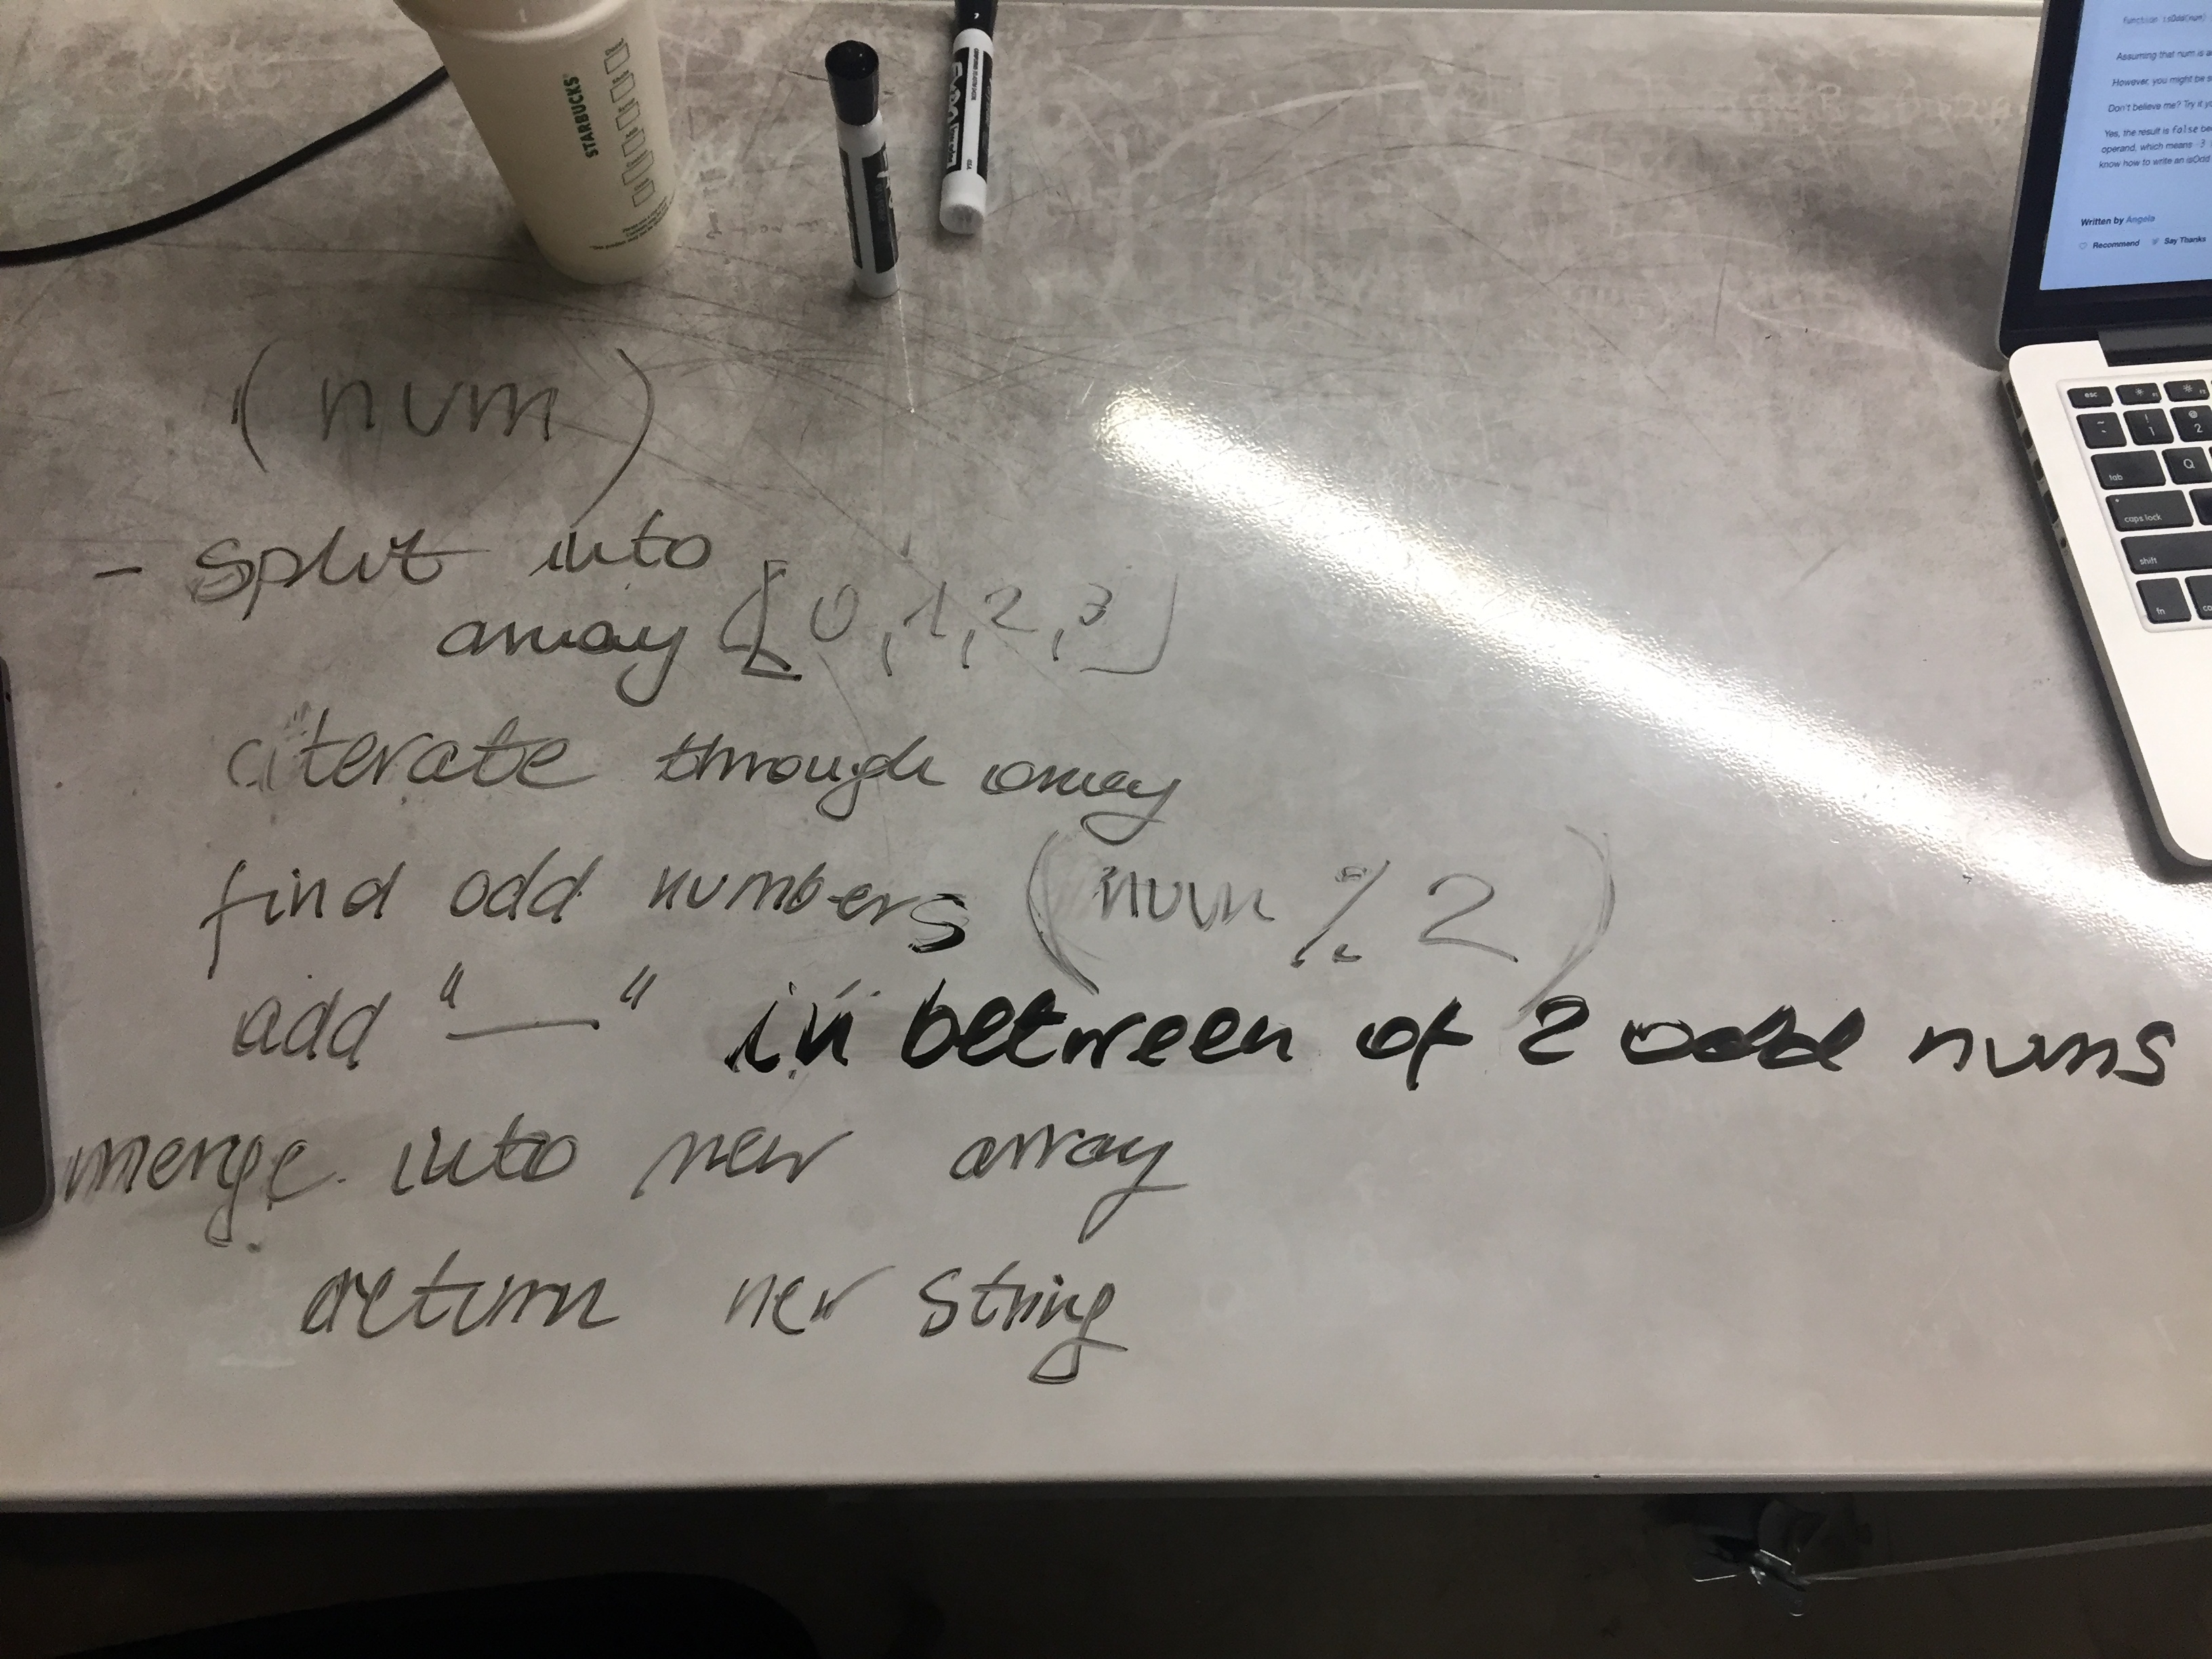 STARBUCKS
EXPO
function isOdd(num)
Assuming that num is
However, you might be
Don't believe me? Try it
Yes, the result is false
operand, which means -3
know how to write an isOdd
Written by Angela
Recommend Say Thanks
esc
~ ! 1 @ 2
tab Q
caps lock
shift
fn
(num)
- split into
array [0,1,2,3]
iterate through array
find odd numbers (num % 2)
add "—" in between of 2 odd nums
merge into new array
return new string